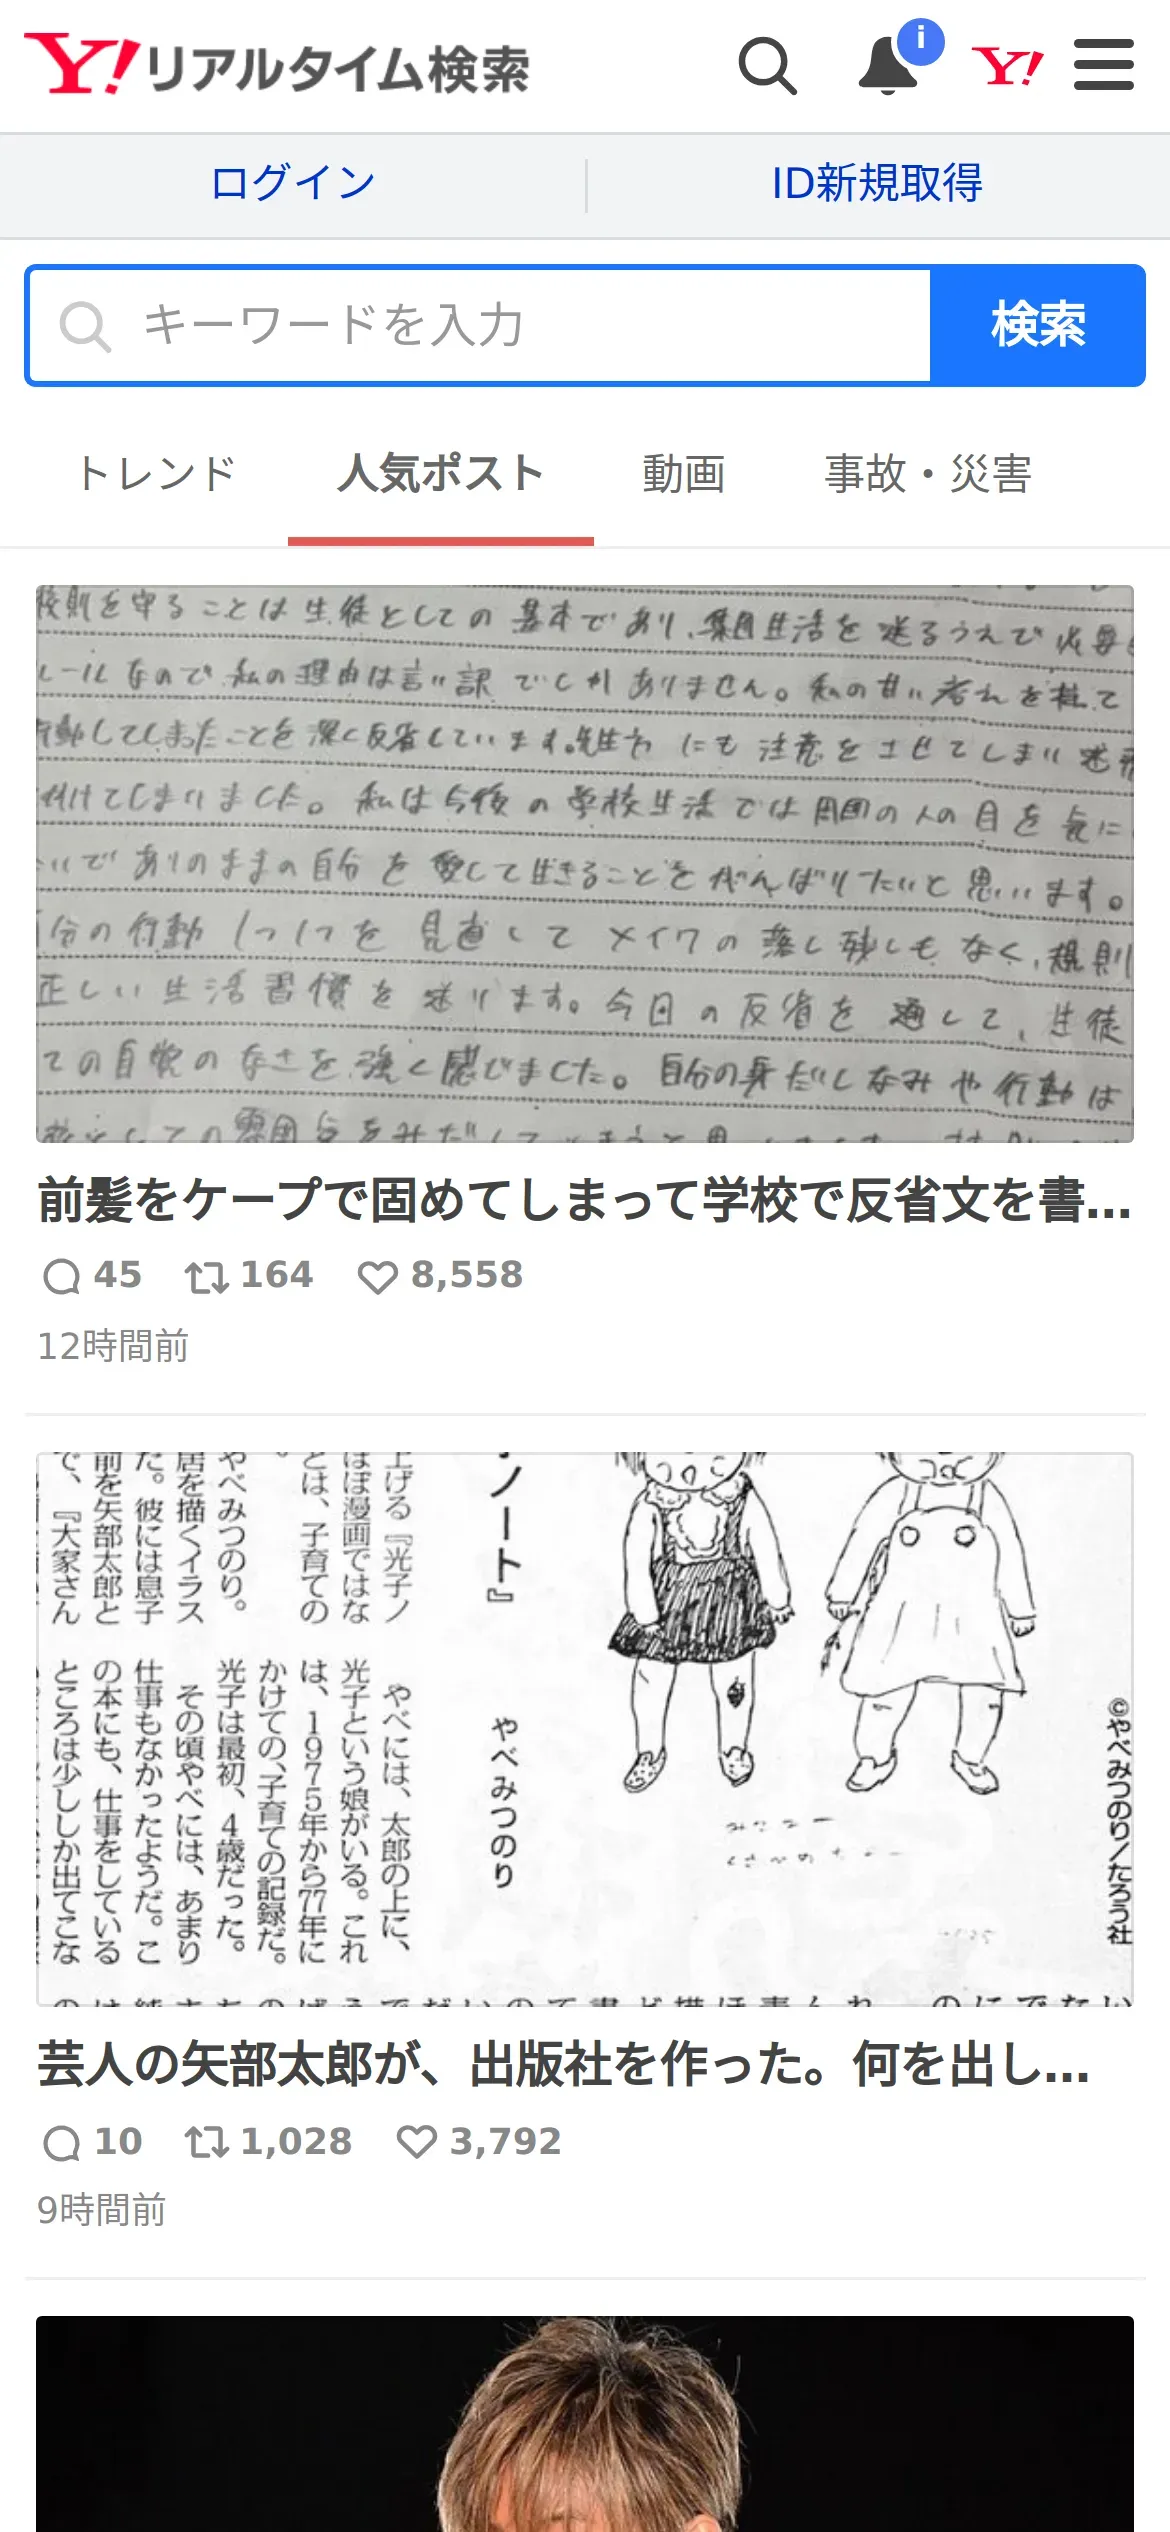 Y!リアルタイム検索
i
Y!
ログイン
ID新規取得
キーワードを入力
検索
トレンド
人気ポスト
動画
事故・災害
校則を守ることは生徒としての基本であり、集団生活を送るうえで必要
ルールなので私の理由は言い訳でしかありません。私の甘い考えを捨て
行動してしまったことを深く反省しています。先生方にも注意をさせてしまい迷
付けてしまいました。私は今後の学校生活では周囲の人の目を気に
いでありのままの自分を愛して生きることをがんばりたいと思います。
分の行動1つ1つを見直してメイクの落し残しもなく、規則
正しい生活習慣を送ります。今日の反省を通して、生徒
ての自覚のなさを強く感じました。自分の身だしなみや行動は
前髪をケープで固めてしまって学校で反省文を書...
45
164
8,558
12時間前
ノート』
やべみつのり
©やべみつのり／たろう社
上げる『光子ノ
ほぼ漫画ではな
とは、子育ての
。
やべみつのり。
居を描くイラス
た。彼には息子
前を矢部太郎と
で、『大家さん
やべには、太郎の上に、
光子という娘がいる。これ
は、1975年から77年に
かけての、子育ての記録だ。
光子は最初、4歳だった。
その頃やべには、あまり
仕事もなかったようだ。こ
の本にも、仕事をしている
ところは少ししか出てこな
芸人の矢部太郎が、出版社を作った。何を出し...
10
1,028
3,792
9時間前